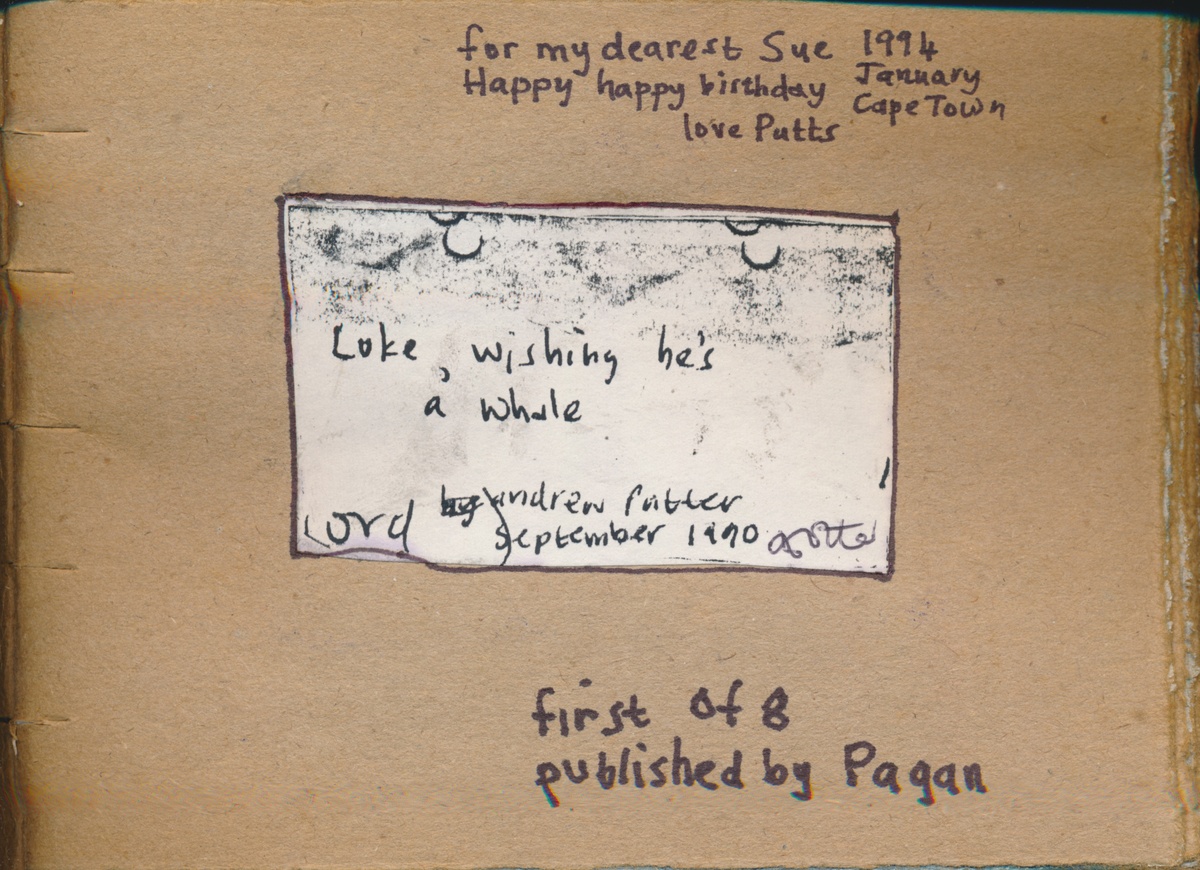 for my dearest Sue 1994
Happy happy birthday January
Cape Town
love Putts
Luke, wishing he's
a whale
by andrew Putter
Lord September 1990
first of 8
published by Pagan